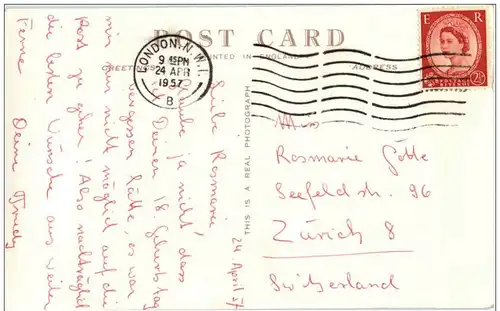 POST CARD
PRINTED IN ENGLAND
GREETINGS
ADDRESS
LONDON. N.W.1.
9 45 PM
24 APR
1957
B
E R
2½
THIS IS A REAL PHOTOGRAPH
24. April 57
Liebe Rosmarie
Glaube ja nicht, dass
ich Deinen 18. Geburtstag
vergessen hätte, es war
mir nur nicht möglich auf die
Post zu gehen! Also nachträglich
die besten Wünsche aus weiter
Ferne
Deine Trudy
Miss
Rosmarie
Seefeldstr. 96
Zürich 8
Switzerland